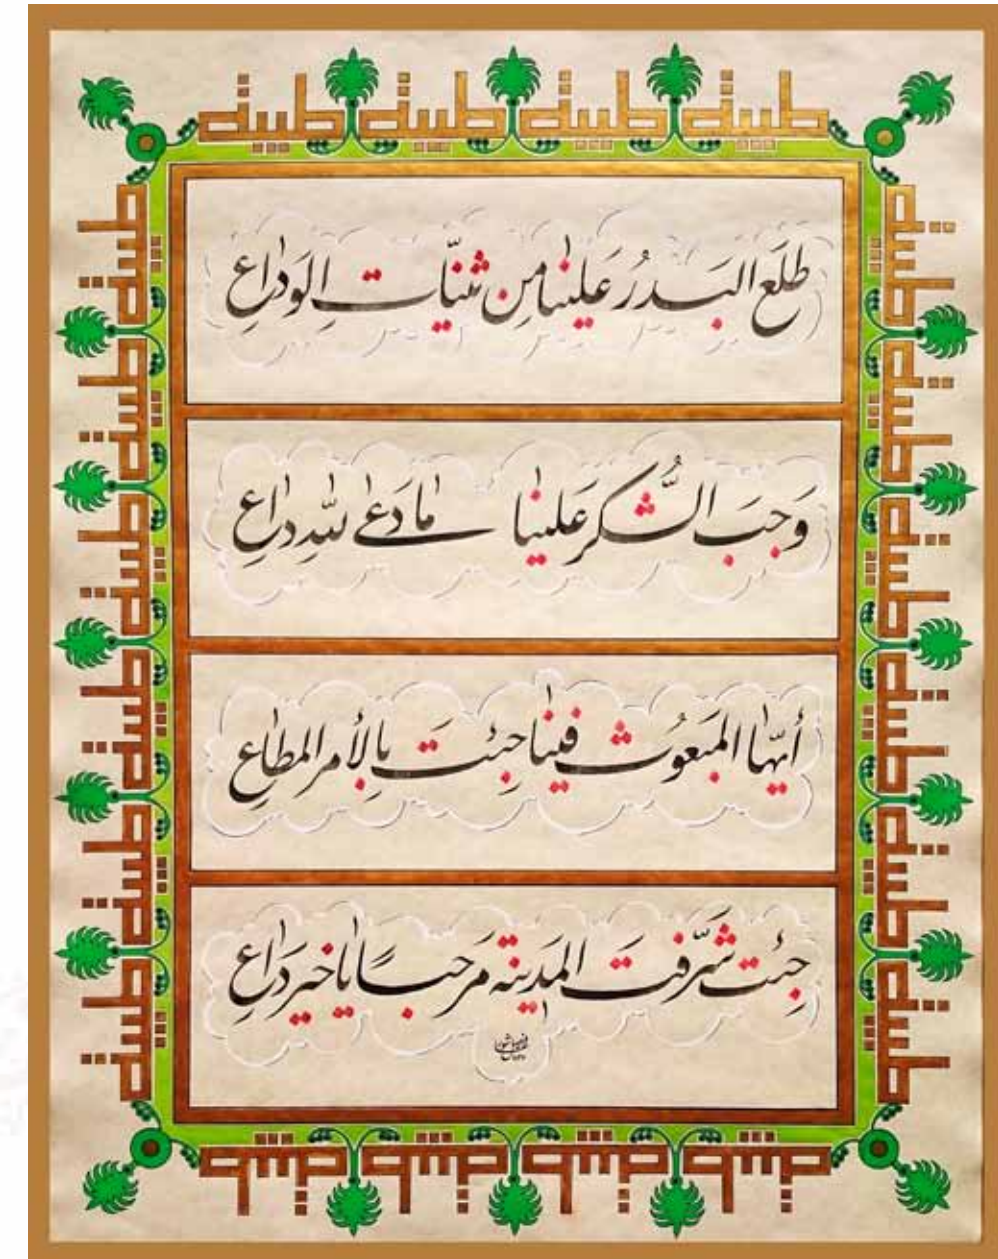 طيبة طيبة طيبة طيبة
طَلَعَ البَـدرُ عَلَينا مِن ثَنيّاتِ الوَداعِ
وَجَبَ الشُّكرُ عَلَينا ما دَعىٰ للهِ داعِ
أيّها المَبعُوث فينا جِئتَ بِالأمرِ المطاعِ
جِئتَ شَرّفتَ المَدينة مَرحَبـاً يا خَيرَ داعِ